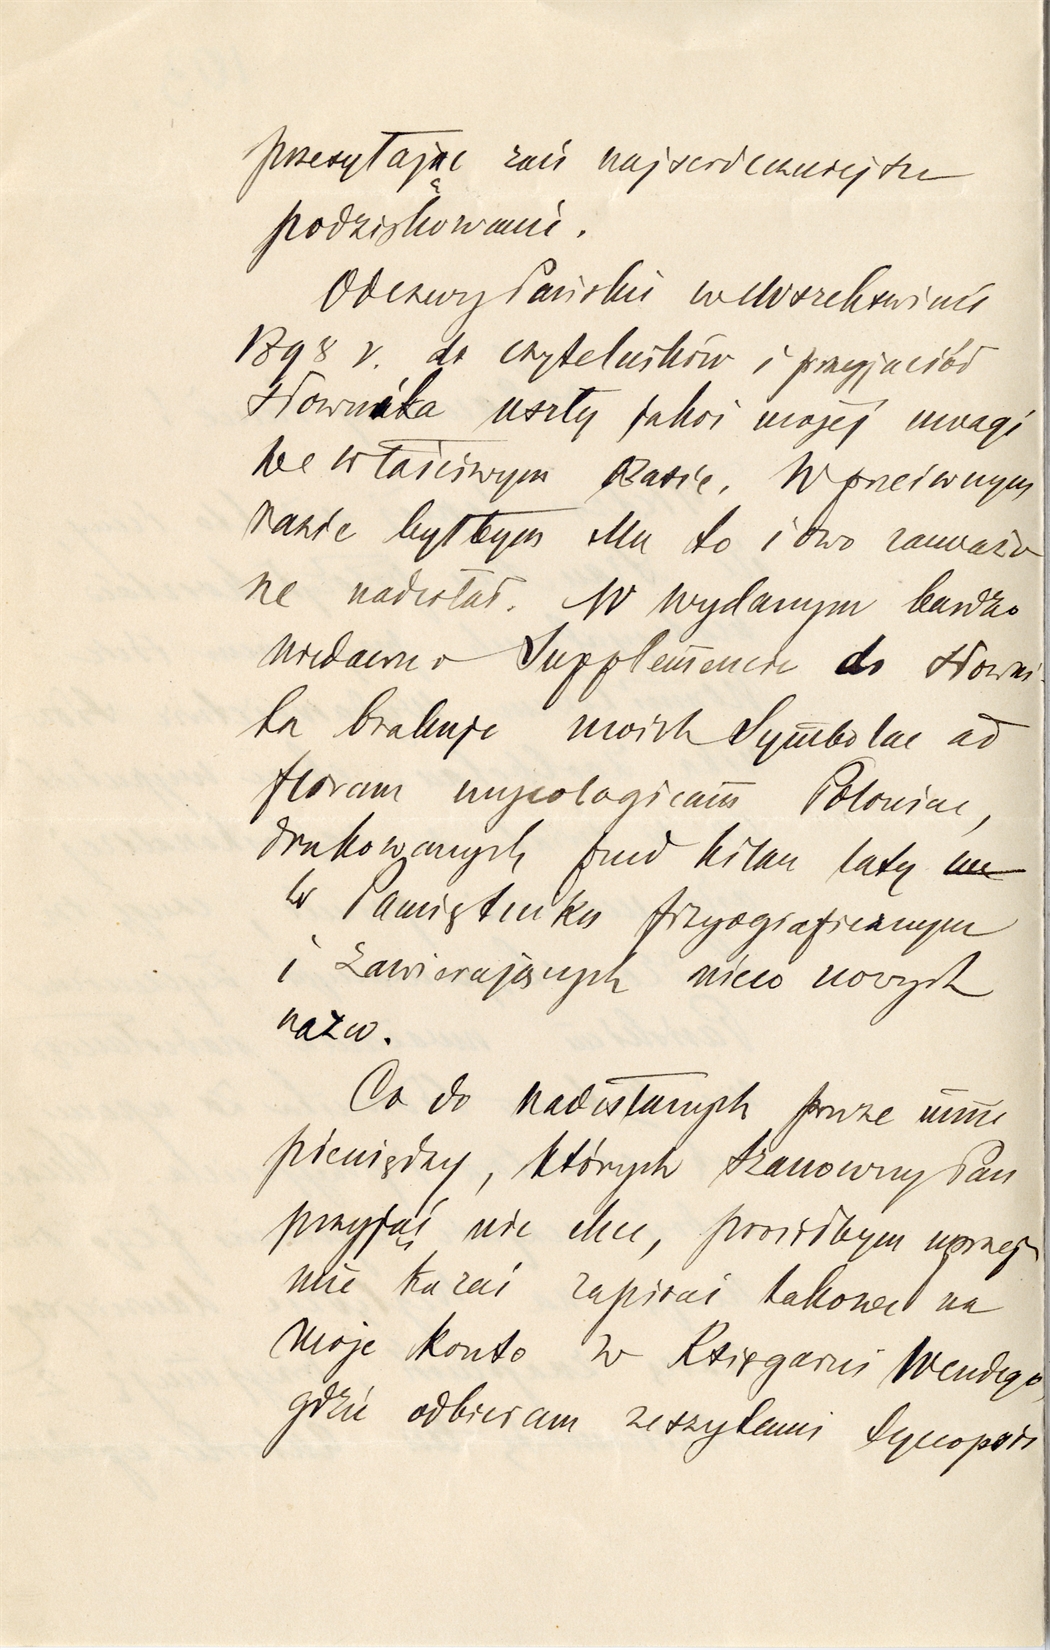 przesyłając zań najserdeczniejsze
podziękowanie.
Odezwy Pańskiej we Wszechświecie
1898 r. do czytelników i przyjaciół
Słownika uszły jakoś mojej uwagi
we właściwym czasie. W przeciwnym
razie byłbym Mu to i owo zauważo
ne nadesłał. W wydanym bardzo
niedawno Supplemencie do Słowni-
ka brakuje moich Symbolae ad
floram mycologicam Poloniae,
drukowanych przed kilku laty
w Pamiętniku fizyograficznym
i zawierających nieco nowych
nazw.
Co do nadesłanych przeze mnie
pieniędzy, których Szanowny Pan
przyjąć nie chce, prosiłbym uprzej
mie kazać zapisać takowe na
moje konto w Księgarni Wendego,
gdzie odbieram zeszytami Synopsis